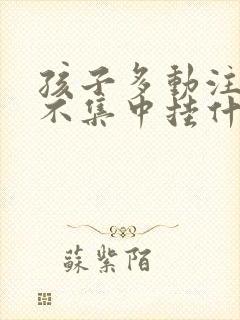 孩子多動注
不集中挂什
蘇紫陌